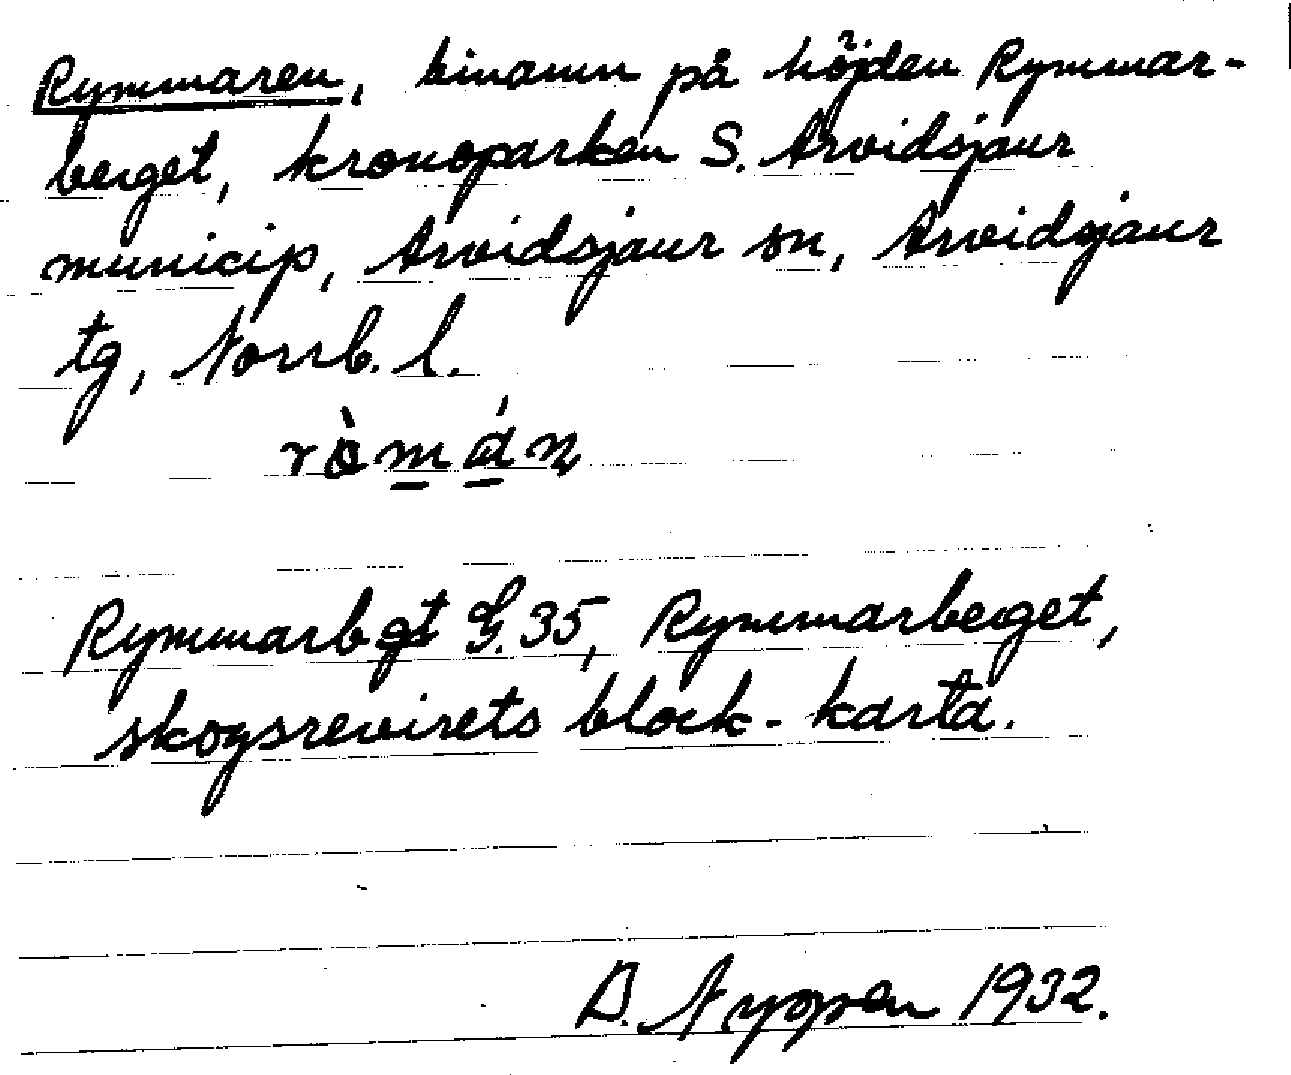 Rymmaren, binamn på höjden Rymmar-
berget, kronoparken S. Arvidsjaur
municip, Arvidsjaur sn, Arvidsjaur
tg, Norrb. l.
ròmán
Rymmarbgt G. 35, Rymmarberget,
skogsrevirets block-karta.
D. Nyppen 1932.